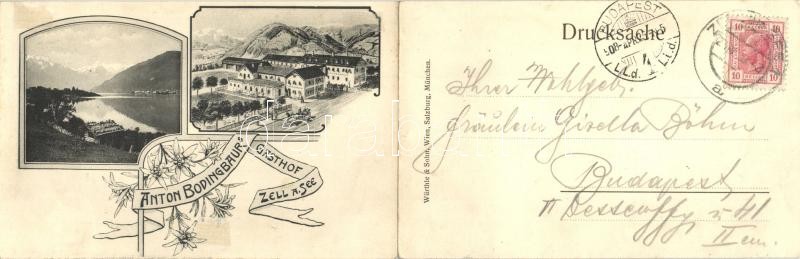 ANTON BODINGBAUR
GASTHOF
ZELL A. SEE
Würthle & Sohn, Wien, Salzburg, München.
Drucksache
BUDAPEST
10 10
Ihrer Wohlgeb.
Fräulein Gisella Böhm
Budapest
41
II em.